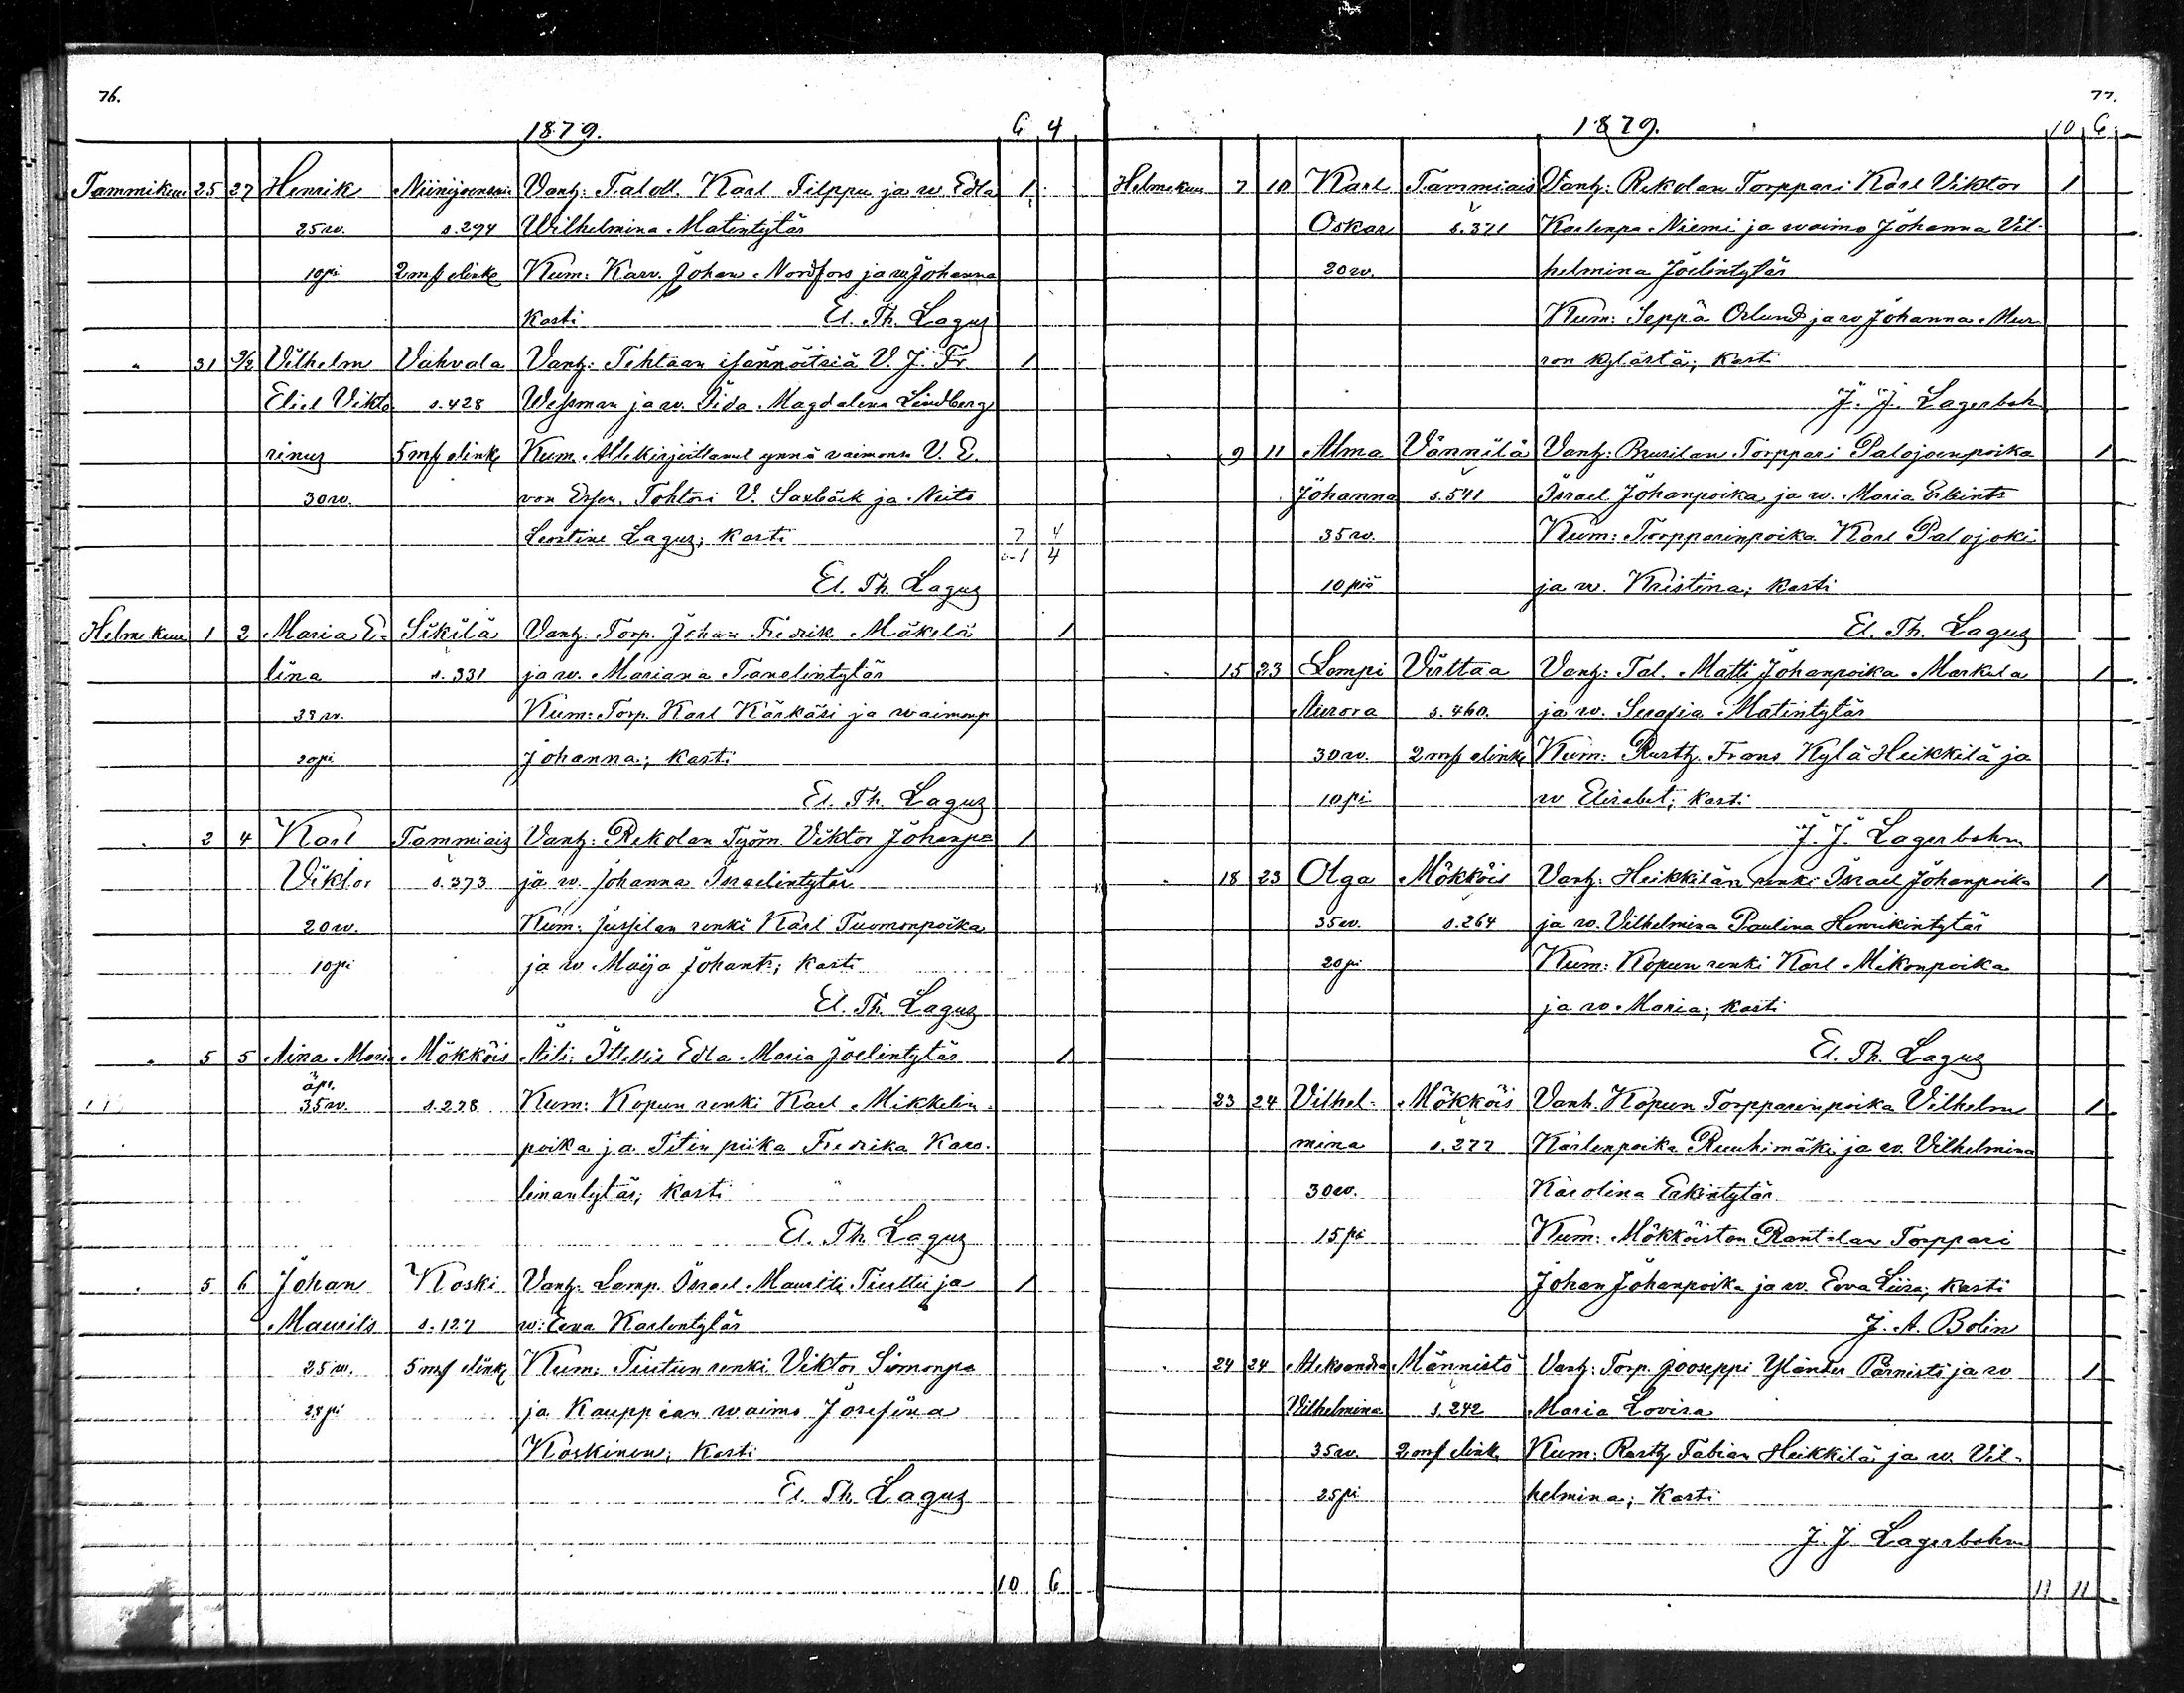 76.
1879. 6 4
Tammikuu 25 27 Henrik Niinijoensuu Vanh: Taloll. Karl Filppu ja w Edla 1
25 w. s. 294 Wilhelmina Matintytär
10 pi 2 mk elinke Kum: Karv. Johan Nordfors ja w Johanna
kasti El. Th. Lagus
" 31 9/2 Vilhelm Vahvala Vanh: Tehtaan isännöitsiä V. J. Fr. 1
Eliel Vikto s. 428 Wessman ja w. Iida Magdalena Lindberg
rinus 5 mk elink Kum. Allekirjoittanut ynnä vaimonsa V. E.
30 w. von Essen, Tohtori V. Saxbäck ja Neito
Leontine Lagus; kasti 7 4
1 4
El. Th. Lagus
Helmekuu 1 2 Maria E- Sikilä Vanh: Torp. Johan Fredrik Mäkelä 1
lina s. 331 ja w. Mariana Tanelintytär
38 w. Kum: Torp. Karl Kärkäsi ja waimonsa
20 pi Johanna; kasti
El. Th. Lagus
" 2 4 Karl Tammiais Vanh: Rekolan Työm. Viktor Johanp= 1
Viktor s. 373 ja w. Johanna Israelintytär
20 w. Kum: Jussilan renki Karl Tuomonpoika
10 pi ja w Maija Johant:; kasti
El. Th. Lagus
" 5 5 Aina Maria Mökköis Äiti: Itsellis Edla Maria Joelintytär 1
äpr.
35 w. s. 278 Kum: Kopun renki Karl Mikkelin-
poika ja Titin piika Fredrika Karo-
linantytär; kasti
El. Th. Lagus
" 5 6 Johan Koski Vanh: Lamp. Israel Mauritz Tiuttu ja 1
Maurits s. 127 w: Eeva Karlentytär
25 w. 5 mk elink Kum: Tiutun renki Viktor Simonpa
28 pi ja Kauppian waimo Josefina
Koskinen; kasti
El. Th. Lagus
10 6
77.
1879. 10 6
Helmekuu 7 10 Karl Tammiais Vanh: Rekolan Torppari Karl Viktor 1
Oskar s. 371 Karlenpa Niemi ja waimo Johanna Vil-
20 w. helmina Joelintytär
Kum: Seppä Orlund ja w Johanna Mur
ron kylästä; kasti
J. J. Lagerboh
" 9 11 Alma Vännilä Vanh: Brusilan Torppari Palojoenpoika 1
Johanna s. 541 Israel Johanpoika ja w. Maria Erkints
35 w. Kum: Torpparinpoika Karl Palojoki
10 piä ja w. Kristina; kasti
El. Th. Lagus
" 15 23 Lempi Virttaa Vanh: Tal. Matti Johanpoika Markula 1
Aurora s. 460. ja w. Serafia Matintytär
30 w. 2 mk elinke Kum: Rusth. Frans Kylä Heikkilä ja
10 pi w Elisabet; kasti
J. J. Lagerbohm
" 18 23 Olga Mökköis Vanh: Heikkilän renki Israel Johanpoika 1
35 w. s. 264 ja w. Vilhelmina Paulina Henrikintytär
20 pi Kum: Kopun renki Karl Mikonpoika
ja w Maria; kasti
El. Th. Lagus
" 23 24 Vilhel- Mökköis Vanh. Kopun Torpparinpoika Vilhelm 1
mina s. 277 Karlenpoika Ruuhimäki ja w. Vilhelmina
30 w. Karolina Erkintytär
15 pi Kum: Mökköisten Rantalan Torppari
Johan Johanpoika ja w. Eeva Liisa; kasti
J. A. Bolin
" 24 24 Aleksandra Männistö Vanh: Torp. Jooseppi Ylander Pärnistö ja w 1
Vilhelmina s. 242 Maria Lovisa
35 w. 2 mk elink Kum: Rusth Fabian Heikkilä ja w. Vil-
25 pi helmina; kasti
J. J. Lagerbohm
11 11